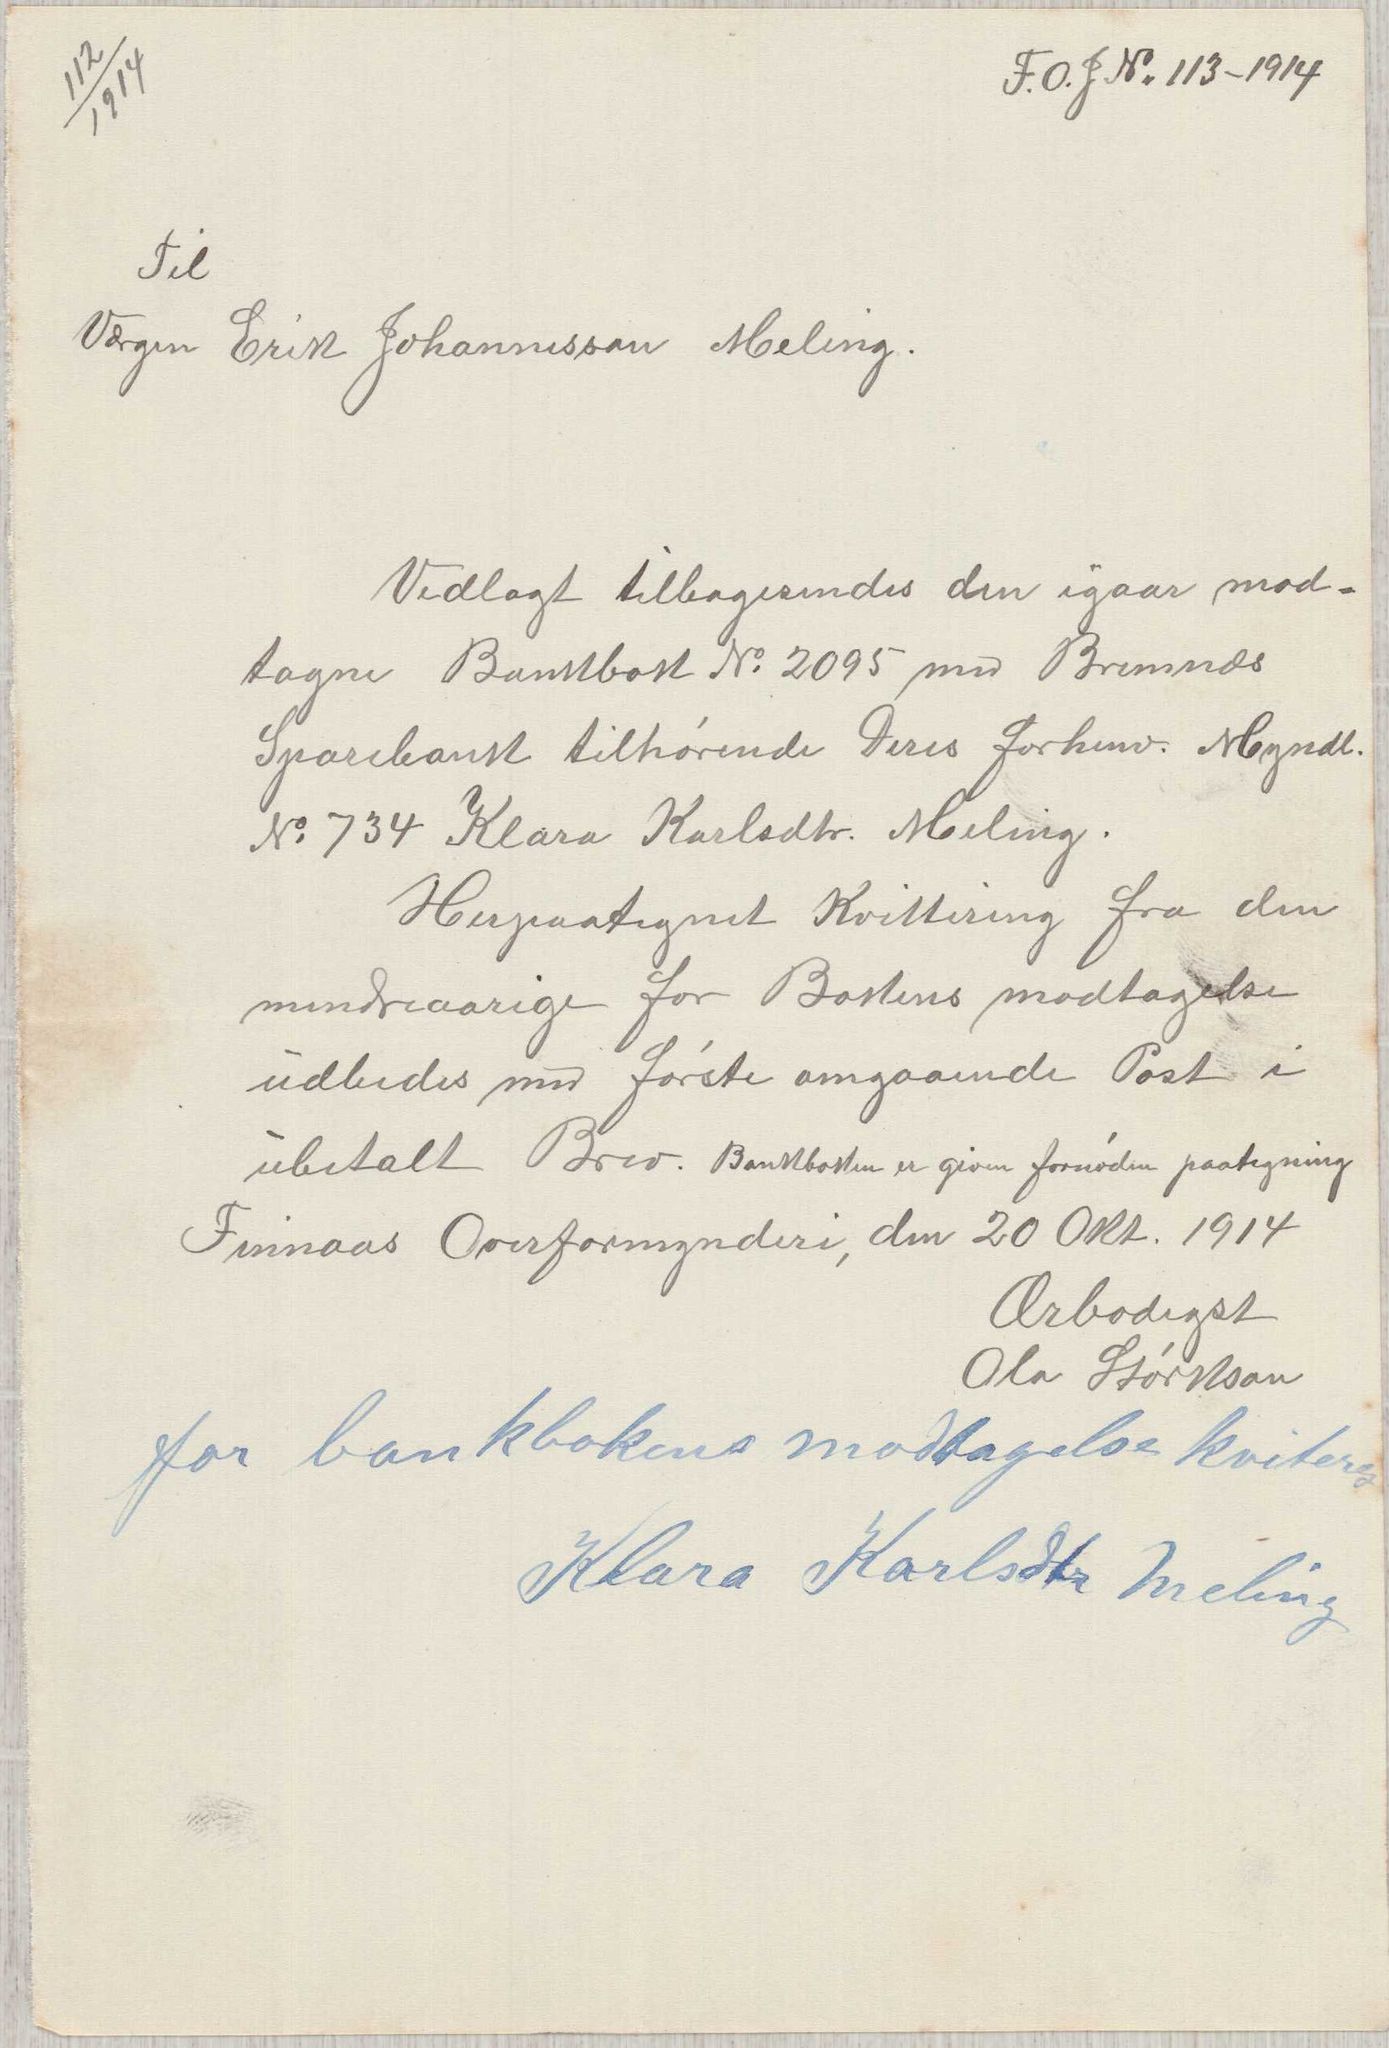 112
1914
F.O.J No. 113-1914
Til
Værgen Erik Johannesson Meling.
Vedlagt tilbagesendes den igaar mod-
tagne Bankbok No. 2095 med Bremnæs
Sparebank tilhørende Deres forhenv. Myndl.
No. 734 Klara Karlsdtr. Meling.
Herpaategnet Kvittering fra den
mindreaarige for Bokens modtagelse
udbedes med første omgaaende Post i
ubetalt Brev. Bankboken er given fornøden paategning
Finnaas Overformynderi, den 20 Okt. 1914
Ærbødigst
Ola Størkson
for bankbokens modtagelse kviteres
Klara Karlsdtr Meling